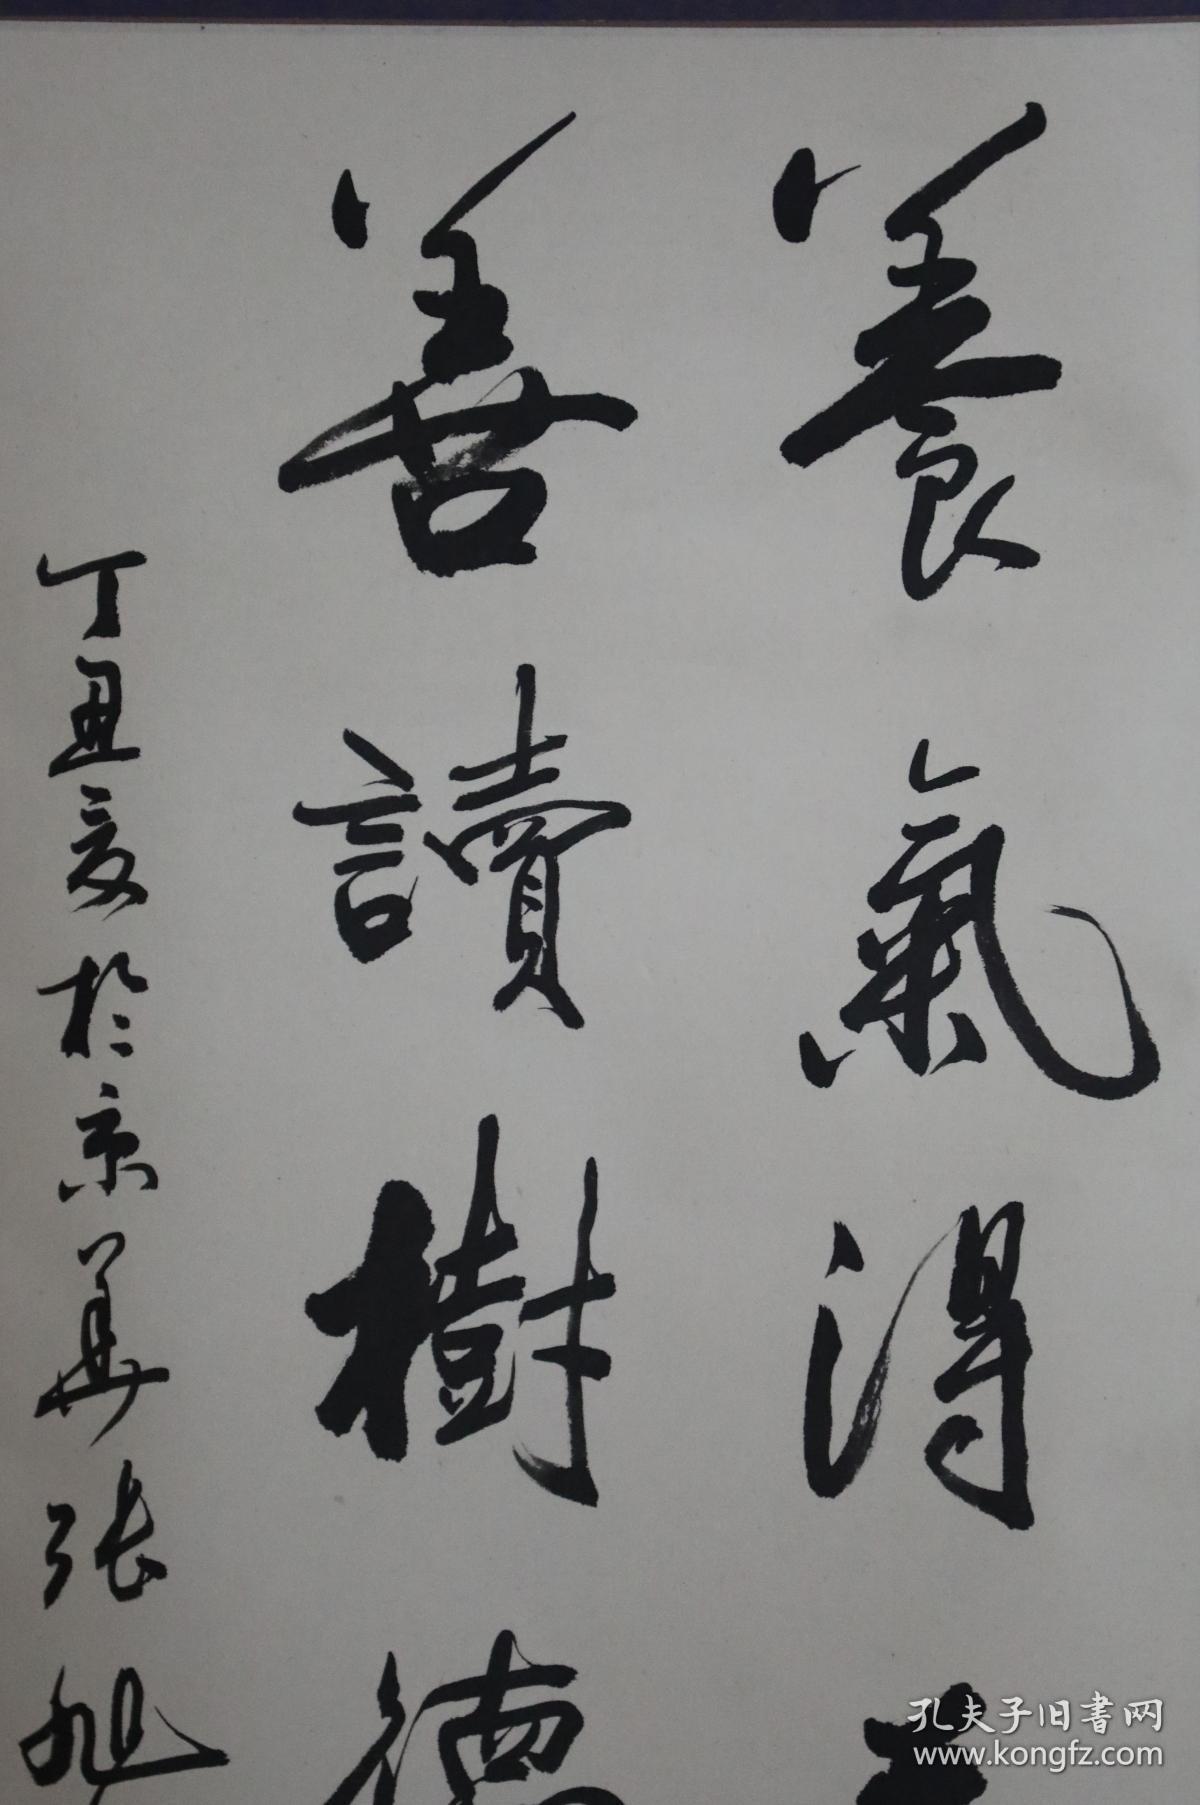 養氣得
善讀樹德
丁丑夏於京華張旭
孔夫子旧書网
www.kongfz.com